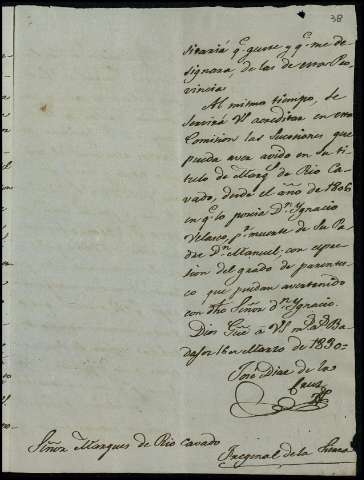 38
sitaria q.e guste y q.e me de-
signara, de las de esa Pro-
vincia.
Al mismo tiempo, se
servirá VS acreditar en esa
Comision las Sucesiones que
pueda aver avido en su ti-
tulo de Marq.s de Rio Ca-
vado, desde el año de 1806
en q.e lo poseia D.n Ygnacio
Velasco, p.r muerte de su Pa-
dre D.n Manuel, con expre-
sion del grado de parentes-
co que puedan aver tenido
con dho Señor D.n Ygnacio.
Dios Gũe a VS m.s a.s Ba-
dajoz 16 de Marzo de 1830.
José Diaz de la
Cruz
Señor Marques de Rio Cavado
Fregenal de la Sierra